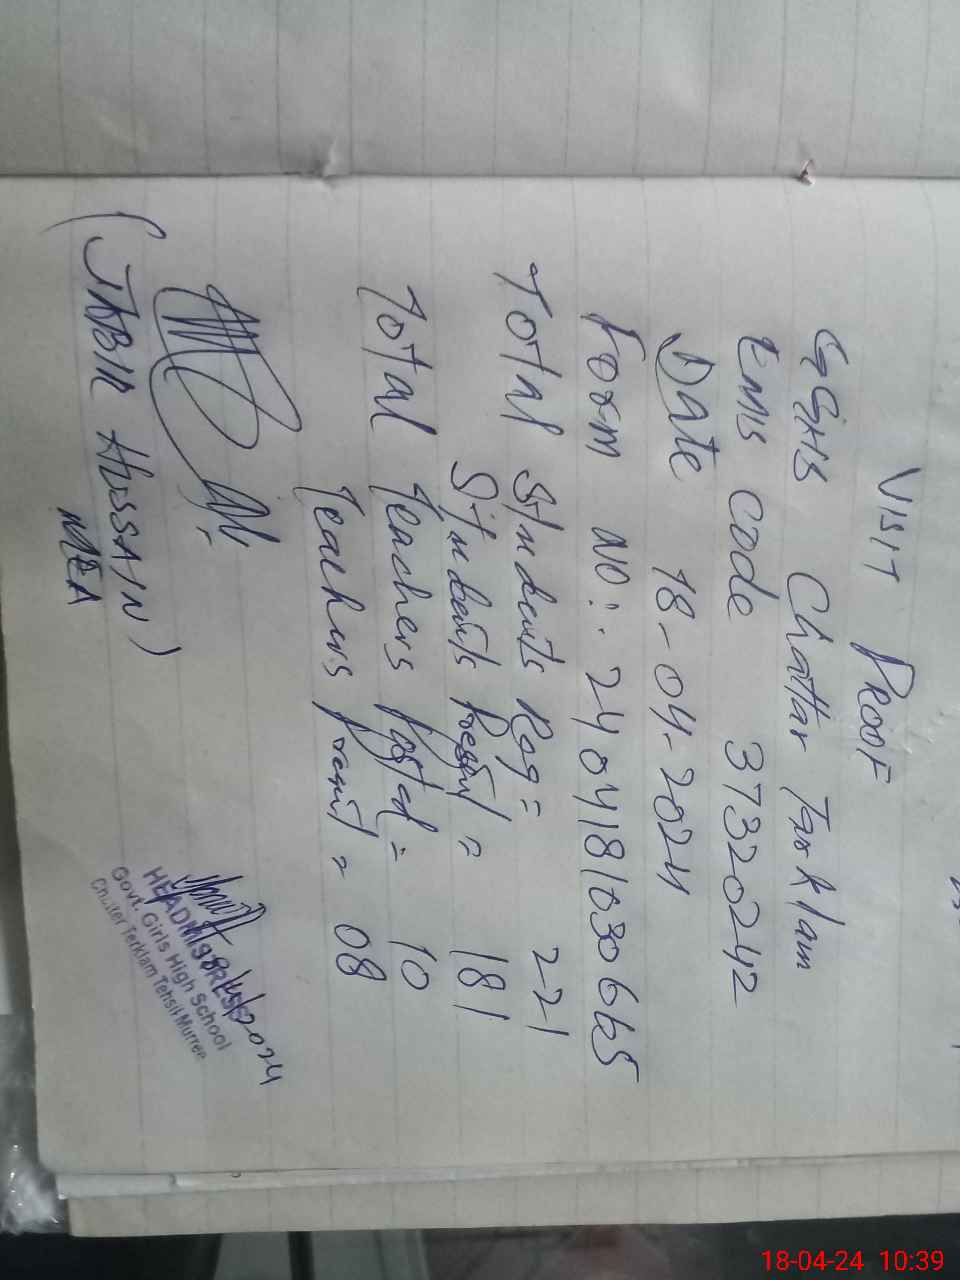 VISIT PROOF
GGHS Chattar Tarklam
EMIS Code 37320242
Date 18-04-2024
Form NO:. 240418103066 5
Total Students Reg = 221
Students Present = 181
Total Teachers Posted = 10
Teachers Present = 08
(JABIR HUSSAIN)
MEA
HEADMISTRESS
Govt. Girls High School
Chatter Terklam Tehsil Murree
18-04-24 10:39